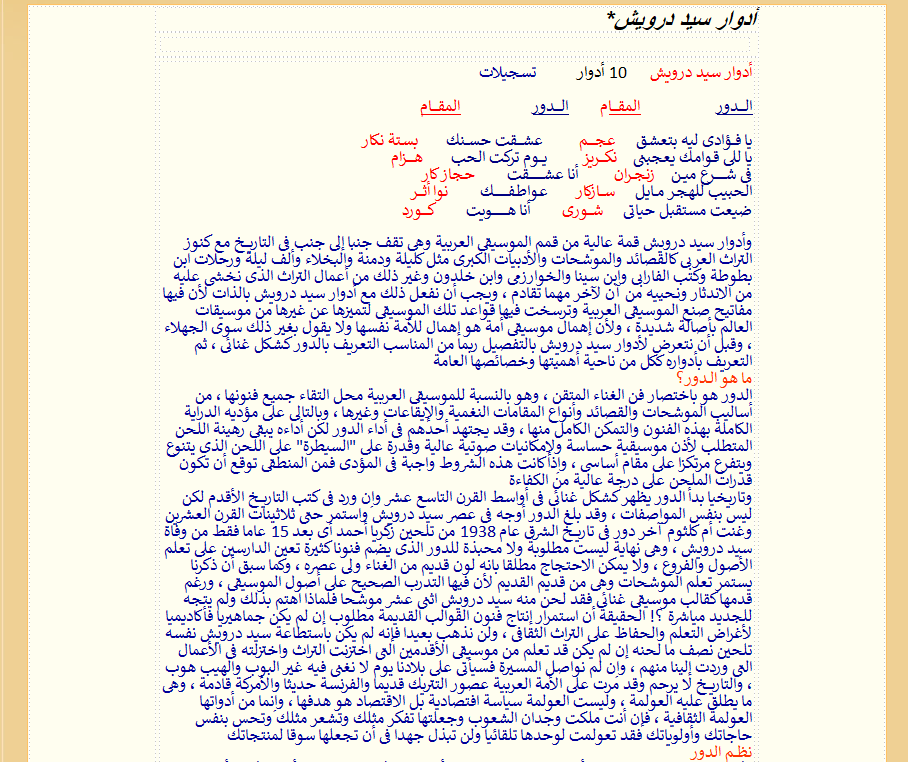 أدوار سيد درويش*
أدوار سيد درويش 10 أدوار تسجيلات
الــدور المقـام الــدور المقـام
يا فـؤادى ليه بتعشق عجـم عشـقت حسـنك بستة نكار
يا للى قوامك يعجبنى نكـريز يـوم تركت الحب هـزام
فى شــرع مـين زنجـران أنا عشــقت حجاز كار
الحبيب للهجر مـايل سـازكار عـواطفــك نوا أثـر
ضيعت مستقبل حياتى شـورى أنا هــويت كـورد
وأدوار سيد درويش قمة عالية من قمم الموسيقى العربية وهى تقف جنبا إلى جنب فى التاريخ مع كنوز
التراث العربى كالقصائد والموشحات والأدبيات الكبرى مثل كليلة ودمنة والبخلاء وألف ليلة ورحلات ابن
بطوطة وكتب الفارابى وابن سينا والخوارزمى وابن خلدون وغير ذلك من أعمال التراث الذى نخشى عليه
من الاندثار ونحييه من آن لآخر مهما تقادم ، ويجب أن نفعل ذلك مع أدوار سيد درويش بالذات لأن فيها
مفاتيح صنع الموسيقى العربية وترسخت فيها قواعد تلك الموسيقى لتميزها عن غيرها من موسيقات
العالم بأصالة شديدة ، ولأن إهمال موسيقى أمة هو إهمال للأمة نفسها ولا يقول بغير ذلك سوى الجهلاء
، وقبل أن نتعرض لأدوار سيد درويش بالتفصيل ربما من المناسب التعريف بالدور كشكل غنائى ، ثم
التعريف بأدواره ككل من ناحية أهميتها وخصائصها العامة
ما هو الدور؟
الدور هو باختصار فن الغناء المتقن ، وهو بالنسبة للموسيقى العربية محل التقاء جميع فنونها ، من
أساليب الموشحات والقصائد وأنواع المقامات النغمية والإيقاعات وغيرها ، وبالتالى على مؤديه الدراية
الكاملة بهذه الفنون والتمكن الكامل منها ، وقد يجتهد أحدهم فى أداء الدور لكن أداءه يبقى رهينة اللحن
المتطلب لأذن موسيقية حساسة ولإمكانيات صوتية عالية وقدرة على "السيطرة" على اللحن الذى يتنوع
ويتفرع مرتكزا على مقام أساسى ، وإذا كانت هذه الشروط واجبة فى المؤدى فمن المنطقى توقع أن تكون
قدرات الملحن على درجة عالية من الكفاءة
وتاريخيا بدأ الدور يظهر كشكل غنائى فى أواسط القرن التاسع عشر وإن ورد فى كتب التاريخ الأقدم لكن
ليس بنفس المواصفات ، وقد بلغ الدور أوجه فى عصر سيد درويش واستمر حتى ثلاثينات القرن العشرين
وغنت أم كلثوم آخر دور فى تاريخ الشرق عام 1938 من تلحين زكريا أحمد أى بعد 15 عاما فقط من وفاة
سيد درويش ، وهى نهاية ليست مطلوبة ولا محبذة للدور الذى يضم فنونا كثيرة تعين الدارسين على تعلم
الأصول والفروع ، ولا يمكن الاحتجاج مطلقا بانه لون قديم من الغناء ولى عصره ، وكما سبق أن ذكرنا
يستمر تعلم الموشحات وهى من قديم القديم لأن فيها التدرب الصحيح على أصول الموسيقى ، ورغم
قدمها كقالب موسيقى غنائى فقد لحن منه سيد درويش اثنى عشر موشحا فلماذا اهتم بذلك ولم يتجه
للجديد مباشرة ؟! الحقيقة أن استمرار إنتاج فنون القوالب القديمة مطلوب إن لم يكن جماهيريا فأكاديميا
لأغراض التعلم والحفاظ على التراث الثقافى ، ولن نذهب بعيدا فإنه لم يكن باستطاعة سيد درويش نفسه
تلحين نصف ما لحنه إن لم يكن قد تعلم من موسيقى الأقدمين التى اختزنت التراث واختزلته فى الأعمال
التى وردت إلينا منهم ، وإن لم نواصل المسيرة فسيأتى على بلادنا يوم لا نغنى فيه غير البوب والهيب هوب
، والتاريخ لا يرحم وقد مرت على الأمة العربية عصور التتريك قديما والفرنسة حديثا والأمركة قادمة ، وهى
ما يطلق عليه العولمة ، وليست العولمة سياسة اقتصادية بل الاقتصاد هو هدفها ، وإنما من أدواتها
العولمة الثقافية ، فإن أنت ملكت وجدان الشعوب وجعلتها تفكر مثلك وتشعر مثلك وتحس بنفس
حاجاتك وأولوياتك فقد تعولمت لوحدها تلقائيا ولن تبذل جهدا فى أن تجعلها سوقا لمنتجاتك
نظـم الدور